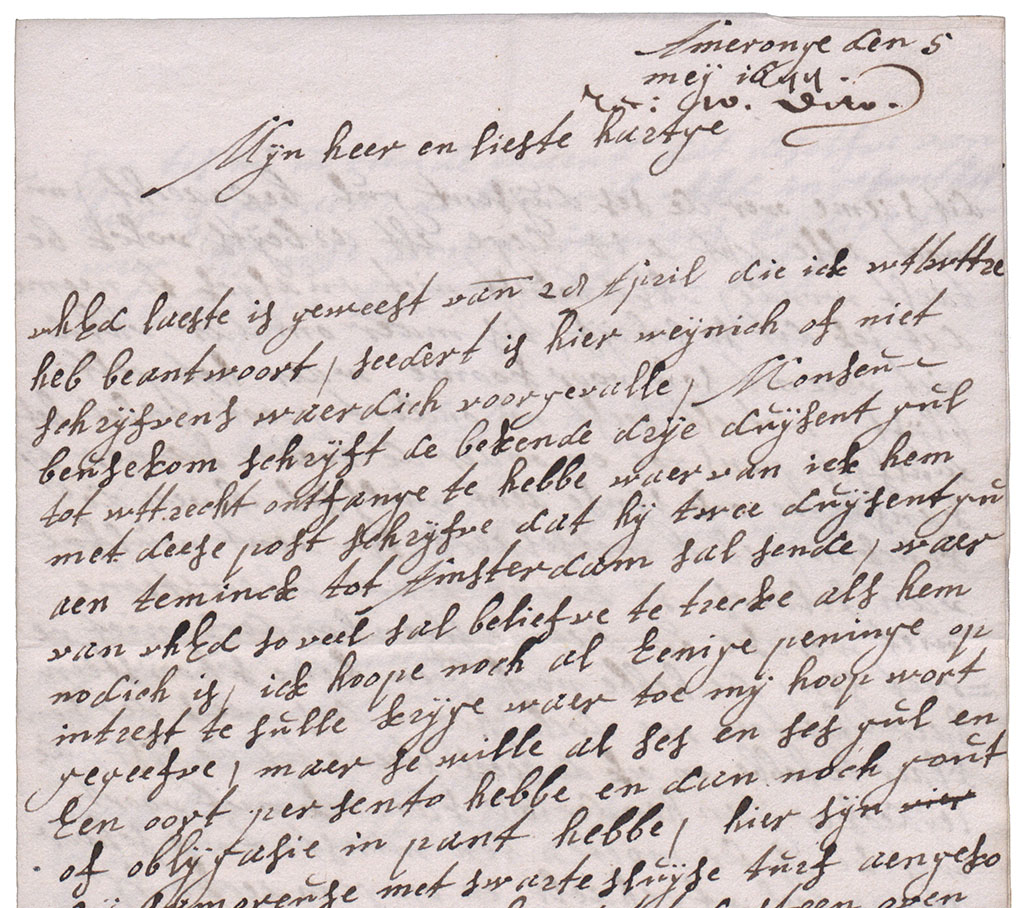 Ameronge den 5
meÿ 1677
Mÿn heer en lieste hartge
uhEd laeste is geweest van 28 April die ick wt
heb beantwoort, seedert is hier weÿnich of niet
schrÿfvens waerdich voorgevalle, Monseu
beusekom schrÿft de bekende drÿe duÿsent gul
tot uttrecht ontfange te hebbe waer van ick hem
met deese post schrÿfve dat hÿ twee duÿsent gu
aen teminck tot Amsterdam sal sende, waer
van uhEd so veel sal beliefve te trecke als hem
nodich is, ick hoope noch al Eenige peninge op
intrest te sulle krÿge waer toe mÿ hoop wort
gegeefve, maer se wille al ses en ses gul en
Een oort persento hebbe en dan noch gout
of oblÿgasie in pant hebbe, hier sÿn vier
met swarte sluÿse turf aengeko